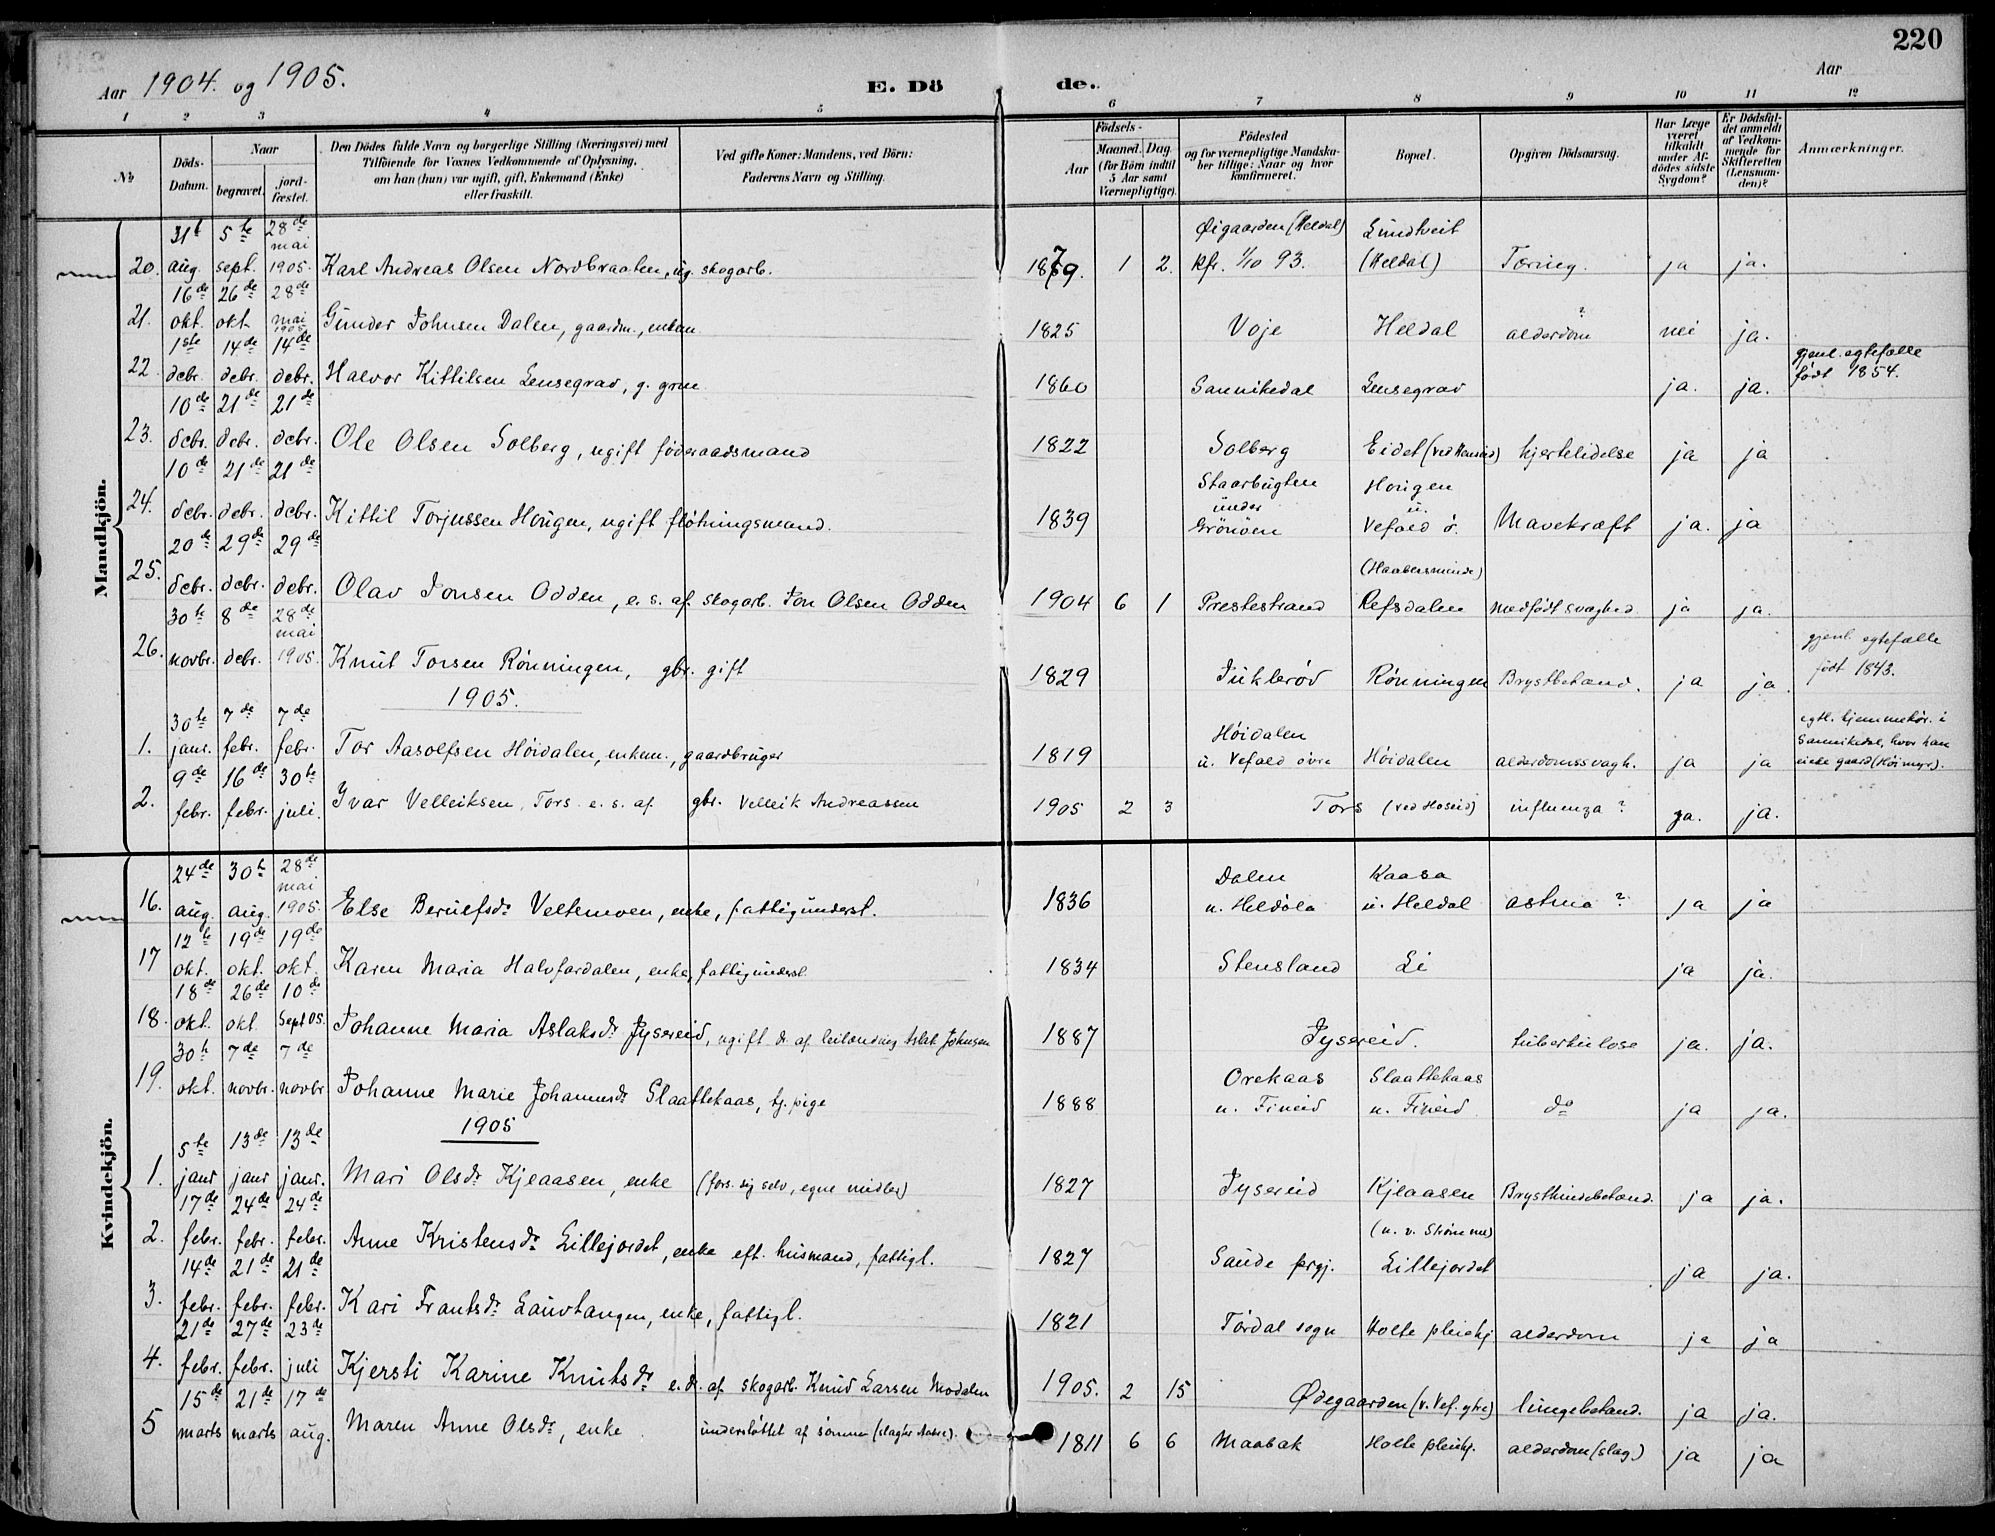 220
Aar 1904. og 1905.
E. Döde.
Aar
1 2 3 4 5 6 7 8 9 10 11 12
№
Döds-Datum.
Naar
begravet.
jord-fæstet.
Den Dödes fulde Navn og borgerlige Stilling (Næringsvei) med
Tilföiende for Voxnes Vedkommende af Oplysning,
om han (hun) var ugift, gift, Enkemand (Enke)
eller fraskilt.
Ved gifte Koner: Mandens, ved Börn:
Faderens Navn og Stilling.
Födsels-
Aar
Maaned. Dag.
(for Börn indtil 5 Aar samt Værnepligtige).
Födested
og for værnepligtige Mandska-
ber tillige: Naar og hvor
konfirmeret.
Bopæl.
Opgiven Dödsaarsag.
Har Læge været tilkaldt under Af-dödes sidste Sygdom?
Er Dödsfal-det anmeldt af Vedkom-mende for Skifteretten (Lensman-den)?
Anmærkninger.
Mandkjön.
20. 31t aug. 5te sept. 28de mai 1905. Karl Andreas Olsen Nordbraaten, ug. skogarb. 1879 1 2. Øigaarden (Heldal) kfr. 1/10 93. Lundtveit (Heldal) Tæring. ja ja.
21. 16de okt. 26de okt. 28de mai 1905. Gunder Johnsen Dalen, gaardm., enkem. 1825 Voje Heldal alderdom ? nei ja.
22. 1ste debr. 14de debr. 14de debr. Halvor Kittilsen Lensegrav, g. grm. 1860 Sannikedal Lensegrav ja. ja. gjenl. egtefælle født 1854.
23. 10de debr. 21de debr. 21de debr. Ole Olsen Solberg, ugift føderaadsmand 1822 Solberg Eidet (ved Henseid) hjertelidelse ja ja
24. 10de debr. 21de debr. 21de debr. Kittil Torjussen Hougen, ugift fløtningsmand. 1839 Staarbugten under Grönöen Hougen u. Vefald ö. Mavekræft ja. ja
25. 20de debr. 29de debr. 29de debr. Olav Jonsen Odden, e. s. af skogarb. Jon Olsen Odden 1904 6 1 Prestestrand (Haabersminde) Refsdalen medfödt svaghed ja ja.
26. 30te novbr. 8de debr. 28de mai 1905. Knut Torsen Rönningen, gbr. gift 1829 Jukleröd Rönningen Brystbetænd. ja ja. gjenl. egtefælle født 1843.
1905.
1. 30te janr. 7de febr. 7de febr. Tor Aasolfsen Höidalen, enkem., gaardbruger 1819 Höidalen u. Vefald övre Höidalen alderdomssvagh. ja ja egtl. hjemmehör. i Sannikedal, hvor han eiede gaard (Höimyr).
2. 9de febr. 16de febr. 30te juli. Ivar Velleiksen, Tors e. s. af gbr. Velleik Andreassen 1905 2 3 Tors (ved Hoseid) influenza ? ja. ja.
Kvindekjön.
16. 24de aug. 30t aug. 28de mai 1905. Else Beruefsdr Veltemoen, enke, fattigunderst. 1836 Dalen u. Heldöla Kaasa u. Heldal astma ? ja ja
17 12te okt. 19de okt. 19de okt. Karen Maria Halvfardalen, enke, fattigunderst. 1834 Stensland Li ja ja.
18. 18de okt. 26de okt. 10de Sept 05. Johanne Maria Aslaksdr Jysereid, ugift d. af leilænding Aslak Johnsen 1887 Jysereid. tuberkulose ja. ja.
19. 30te okt. 7de novbr. 7de novbr. Johanne Marie Johannesdr Slaattekaas, tj. pige 1888 Orekaas u. Fineid Slaattekaas u. Fineid do ja ja.
1905
1. 5te janr 13de janr 13de janr. Mari Olsdr Kjeaasen, enke (fors. sig selv, egne midler) 1827 Jysereid Kjeaasen Brysthindebetænd. ja ja.
2. 17de febr. 24de febr. 24de febr. Anne Kristensdr Lillejordet, enke eft. husmand, fattigl. 1827 Saude prgj. (u. v. Strömme) Lillejordet ja ja.
3. 14de febr. 21de febr. 21de febr. Kari Frantsdr Lauvtangen, enke, fattigl. 1821 Tördal sogn Holte pleiehj. alderdom ja ja
4. 21de febr. 27de febr. 23de juli Kjersti Karine Knutsdr e. d. af skogarb. Knud Larsen Modalen 1905. 2 15 Ødegaarden (v. Vef. ytre) lungebetænd. ja ja.
5 15de marts 21de marts 17de aug. Maren Anne Olsdr, enke understöttet af sönner 1811 6 6 Maabak Holte pleiehj. alderdom (slag.) ja ja